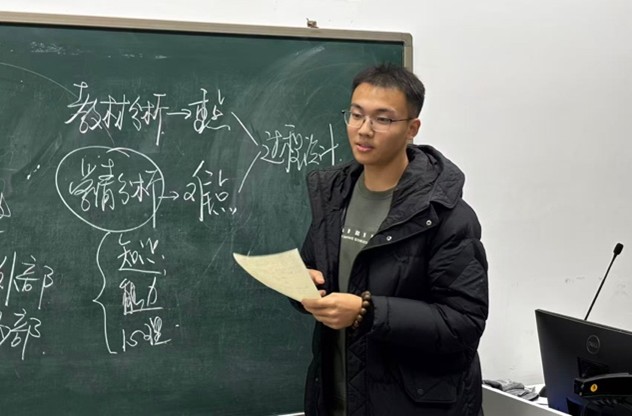 教材分析→重点
过程设计
学情分析→难点
知识
能力
心理
外部
部
DELL